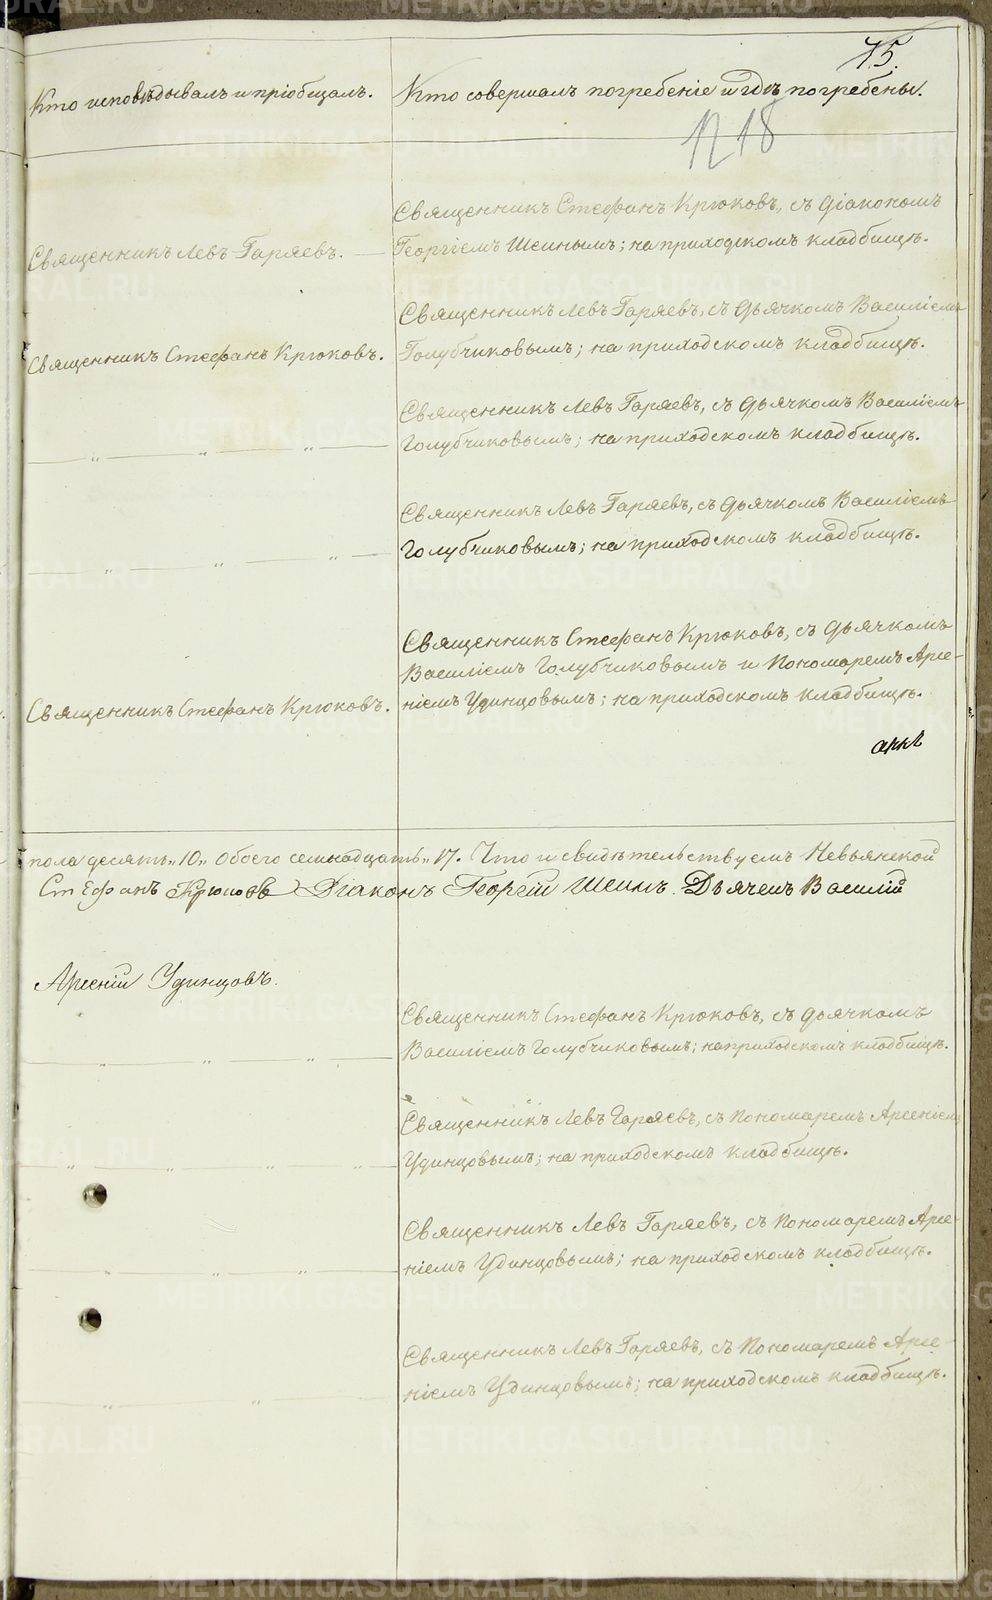 75.
Кто исповѣдывалъ и пріобщалъ.
Кто совершалъ погребеніе и гдѣ погребены.
1218
Священникъ Левъ Гаряевъ.
Священникъ Стефанъ Крюковъ, съ діакономъ
Георгіемъ Шеинымъ; на приходскомъ кладбищѣ.
Священникъ Стефанъ Крюковъ.
Священникъ Левъ Гаряевъ, съ дьячкомъ Василіемъ
Голубчиковымъ; на приходскомъ кладбищѣ.
„ „ „
Священникъ Левъ Гаряевъ, съ дьячкомъ Василіемъ
Голубчиковымъ; на приходскомъ кладбищѣ.
„ „ „
Священникъ Левъ Гаряевъ, съ дьячкомъ Василіемъ
Голубчиковымъ; на приходскомъ кладбищѣ.
Священникъ Стефанъ Крюковъ.
Священникъ Стефанъ Крюковъ, съ дьячкомъ
Василіемъ Голубчиковымъ и Пономаремъ Арсе-
ніемъ Удинцовымъ; на приходскомъ кладбищѣ.
пола десять „10„ обоего семнадцать „17. Что и свидѣтельствуемъ Невьянской
Стефанъ Крюковъ Діаконъ Георгій Шеинъ. Дьячекъ Василій
Арсеній Удинцовъ.
„ „ „
Священникъ Стефанъ Крюковъ, съ дьячкомъ
Василіемъ Голубчиковымъ; на приходскомъ кладбищѣ.
„ „ „ „
Священникъ Левъ Гаряевъ, съ Пономаремъ Арсеніемъ
Удинцовымъ; на приходскомъ кладбищѣ.
„ „ „
Священникъ Левъ Гаряевъ, съ Пономаремъ Арсе-
ніемъ Удинцовымъ; на приходскомъ кладбищѣ.
„ „
Священникъ Левъ Гаряевъ, съ Пономаремъ Арсе-
ніемъ Удинцовымъ; на приходскомъ кладбищѣ.
METRIKI.GASO-URAL.RU